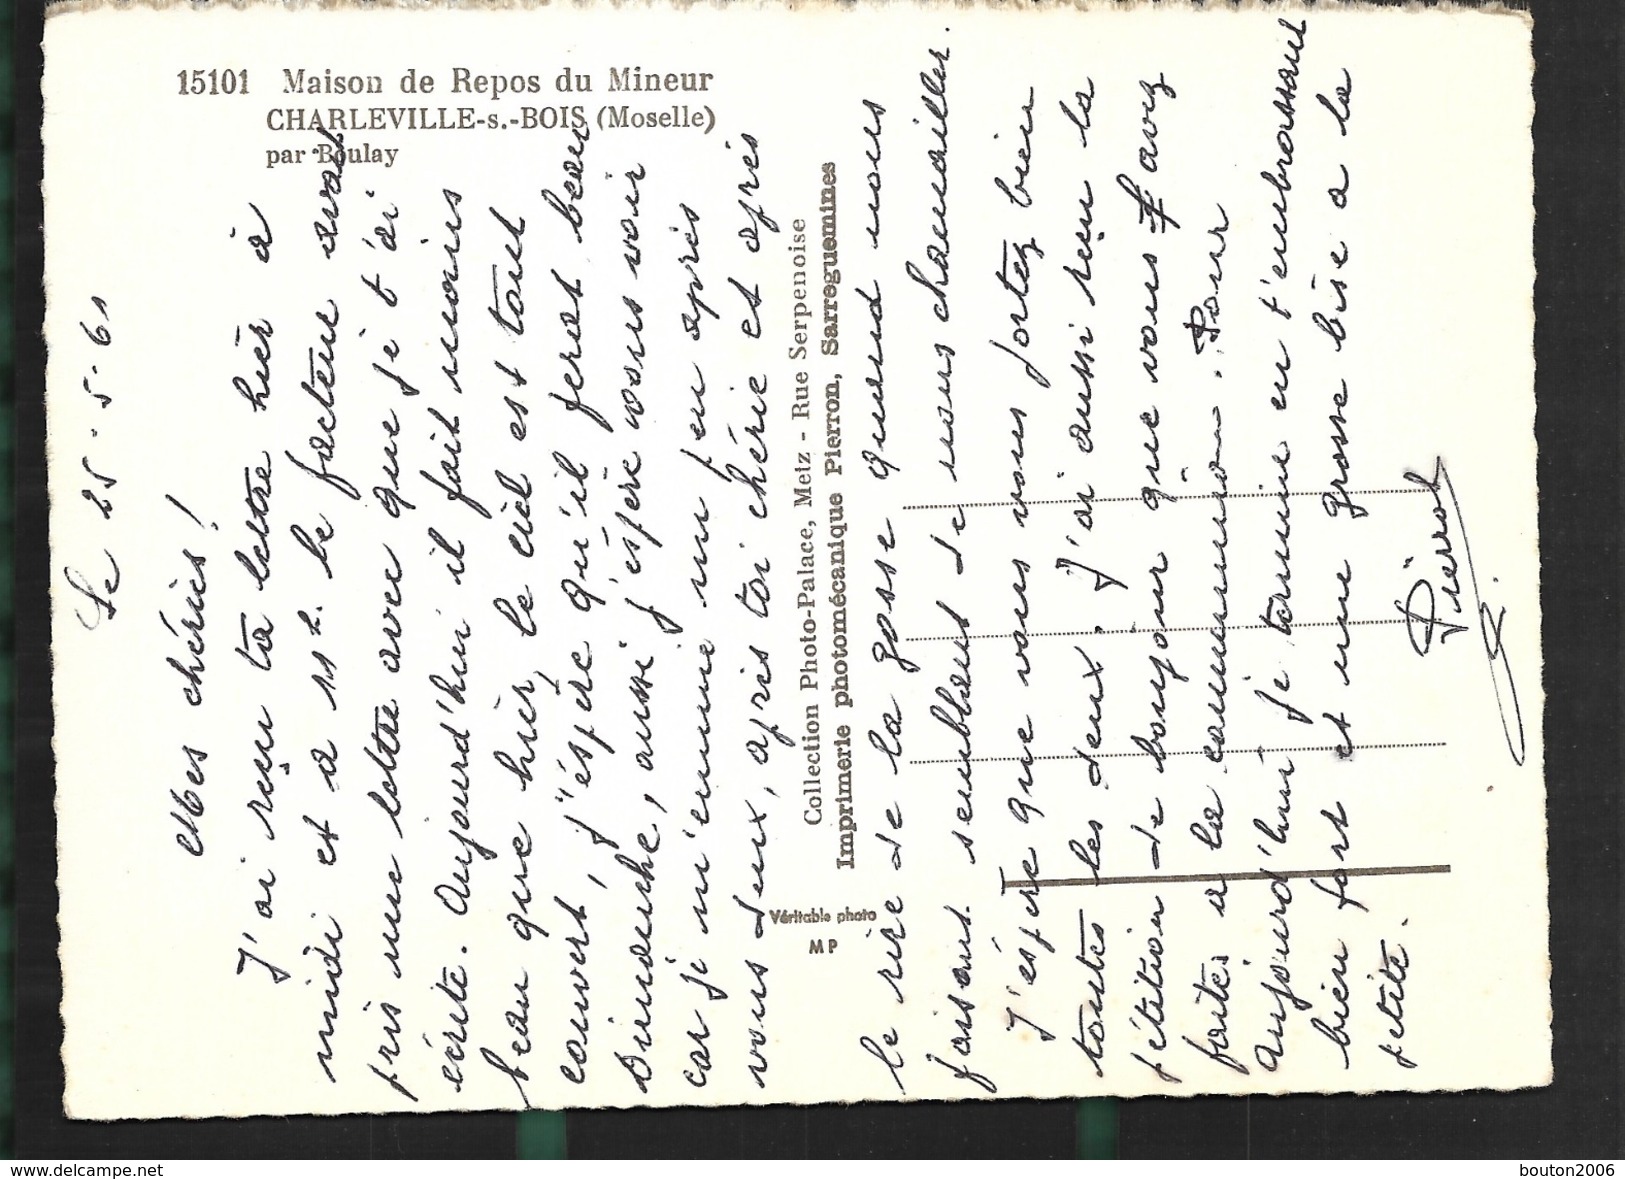 15101 Maison de Repos du Mineur
CHARLEVILLE-s.-BOIS (Moselle)
par Boulay
Le 25-5-61
Mes chéries !
J'ai reçu ta lettre hièr à
midi et a 11h. le facteur avait
pris une lettre avec que je t'ai
écrite. Aujourd'hui il fait moins
beau que hièr, le cièl est tout
couvert, j'éspére qu'il ferat beau
Dimanche, aussi j'éspére vous voir
car je m'ennuie un peu après
vous deux, après toi chérie et après
le rire de la gosse quand nous
faisons semblant de nous chamailler.
J'éspére que vous vous portez bien
toutes les deux. J'ai aussi reçu la
pétition de bonjour que vous avez
faites a la communion. Pour
Aujourd'hui je termine en t'embrassant
bien fort et une grosse bise a la
petite.
Pierrot
Collection Photo-Palace, Metz - Rue Serpenoise
Imprimerie photomécanique Pierron, Sarreguemines
Véritable photo
MP
www.delcampe.net
bouton2006